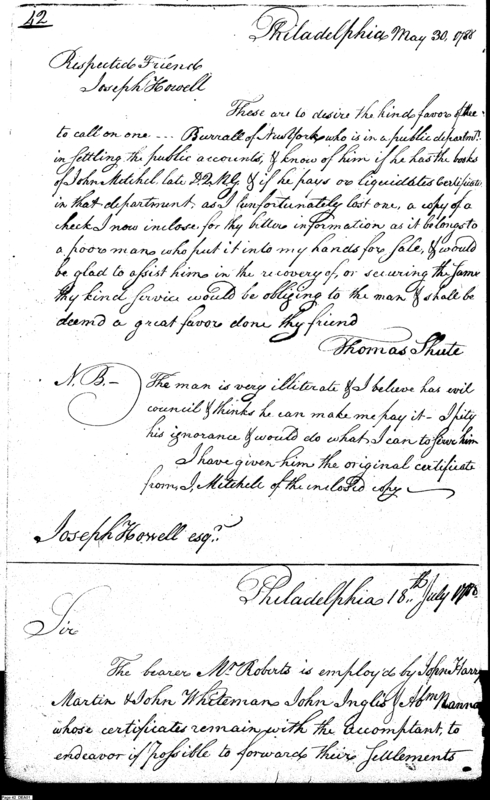 42
Philadelphia May 30, 1788
Respected Friend
Joseph Howell
These are to desire the kind favor of thee
to call on one --- Burrall of New York who is in a public departmt.
in settling the public accounts, & know of him if he has the books
of John Mitchel late D.Q.M.G. & if he pays or liquidates Certificates
in that department, as I unfortunately lost one, a copy of a
check I now inclose for thy better information as it belongs to
a poor man who put it into my hands for Sale, & would
be glad to assist him in the recovery of, or securing the same
thy kind service would be obliging to the man & shall be
deem'd a great favor done thy friend
Thomas Shute
N.B.- The man is very illiterate & I believe has evil
council & thinks he can make me pay it - I pity
his ignorance & would do what I can to serve him
I have given him the original certificate
from J. Mitchell of the inclos'd copy
Joseph Howell esqr.
Philadelphia 18.th July 1788
Sir
The bearer Mr. Roberts is employ'd by John Harr
Martin & John Whiteman John Inglis & Abm Hanna
whose certificates remain with the accomptant, to
endeavor if possible to forward their settlements